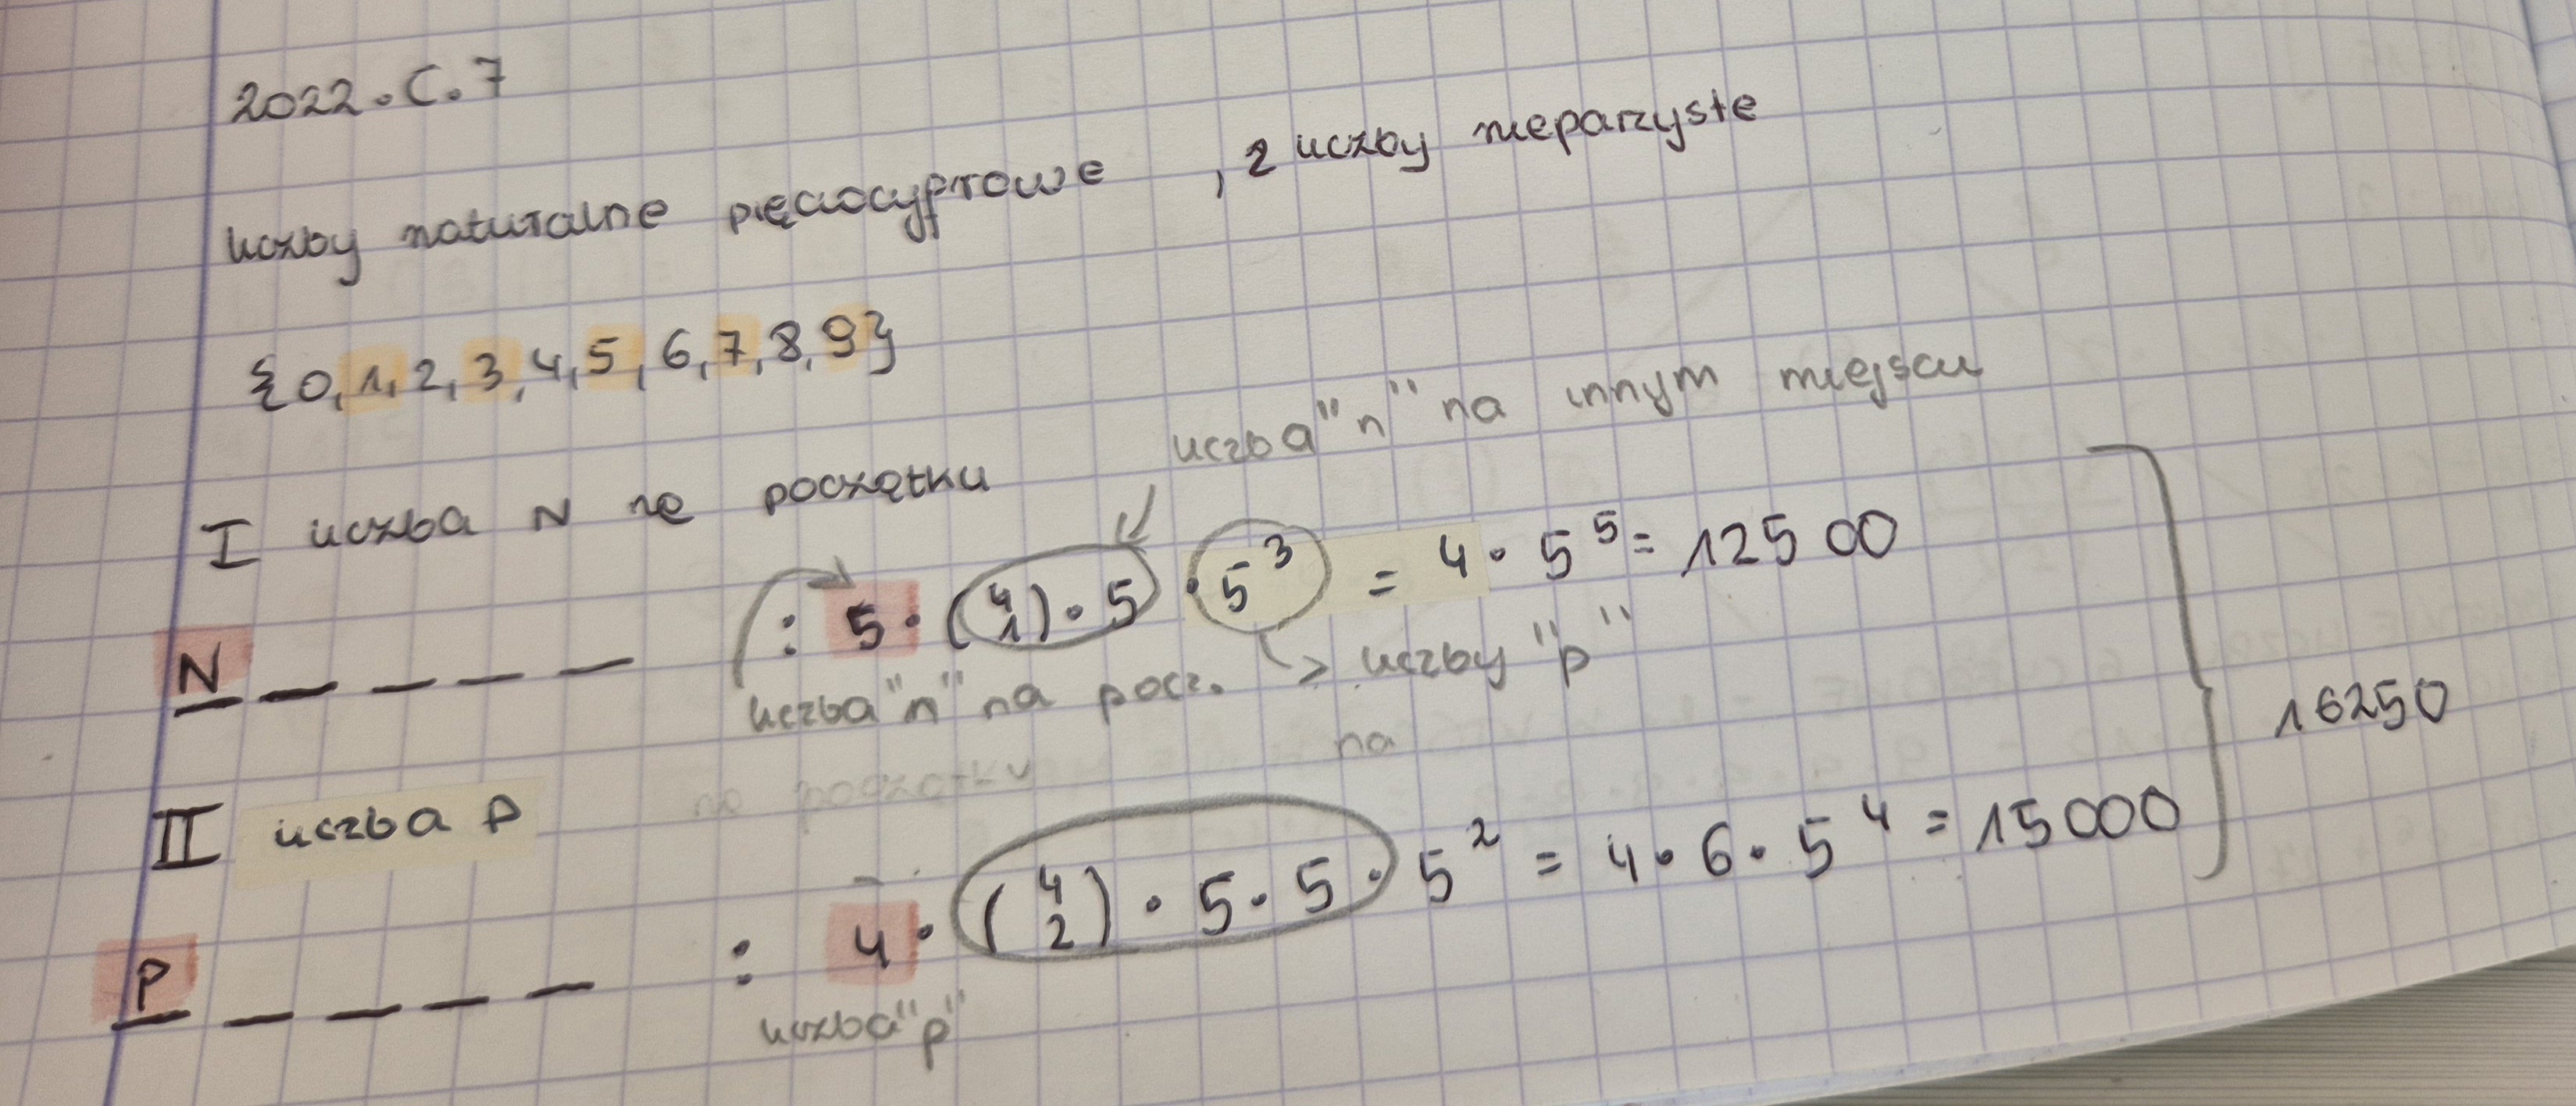 2022.C.7
liczby naturalne pięciocyfrowe , 2 liczby nieparzyste
{0, 1, 2, 3, 4, 5, 6, 7, 8, 9}
liczba "n" na innym miejscu
I liczba N na początku
N _ _ _ _ : 5 · (4 1) · 5 · 5³ = 4 · 5⁵ = 12500
liczba "n" na pocz. > liczby "p"
na
na początku
II liczba P
P _ _ _ _ : 4 · (4 2) · 5 · 5 · 5² = 4 · 6 · 5⁴ = 15000
liczba "p"
16250